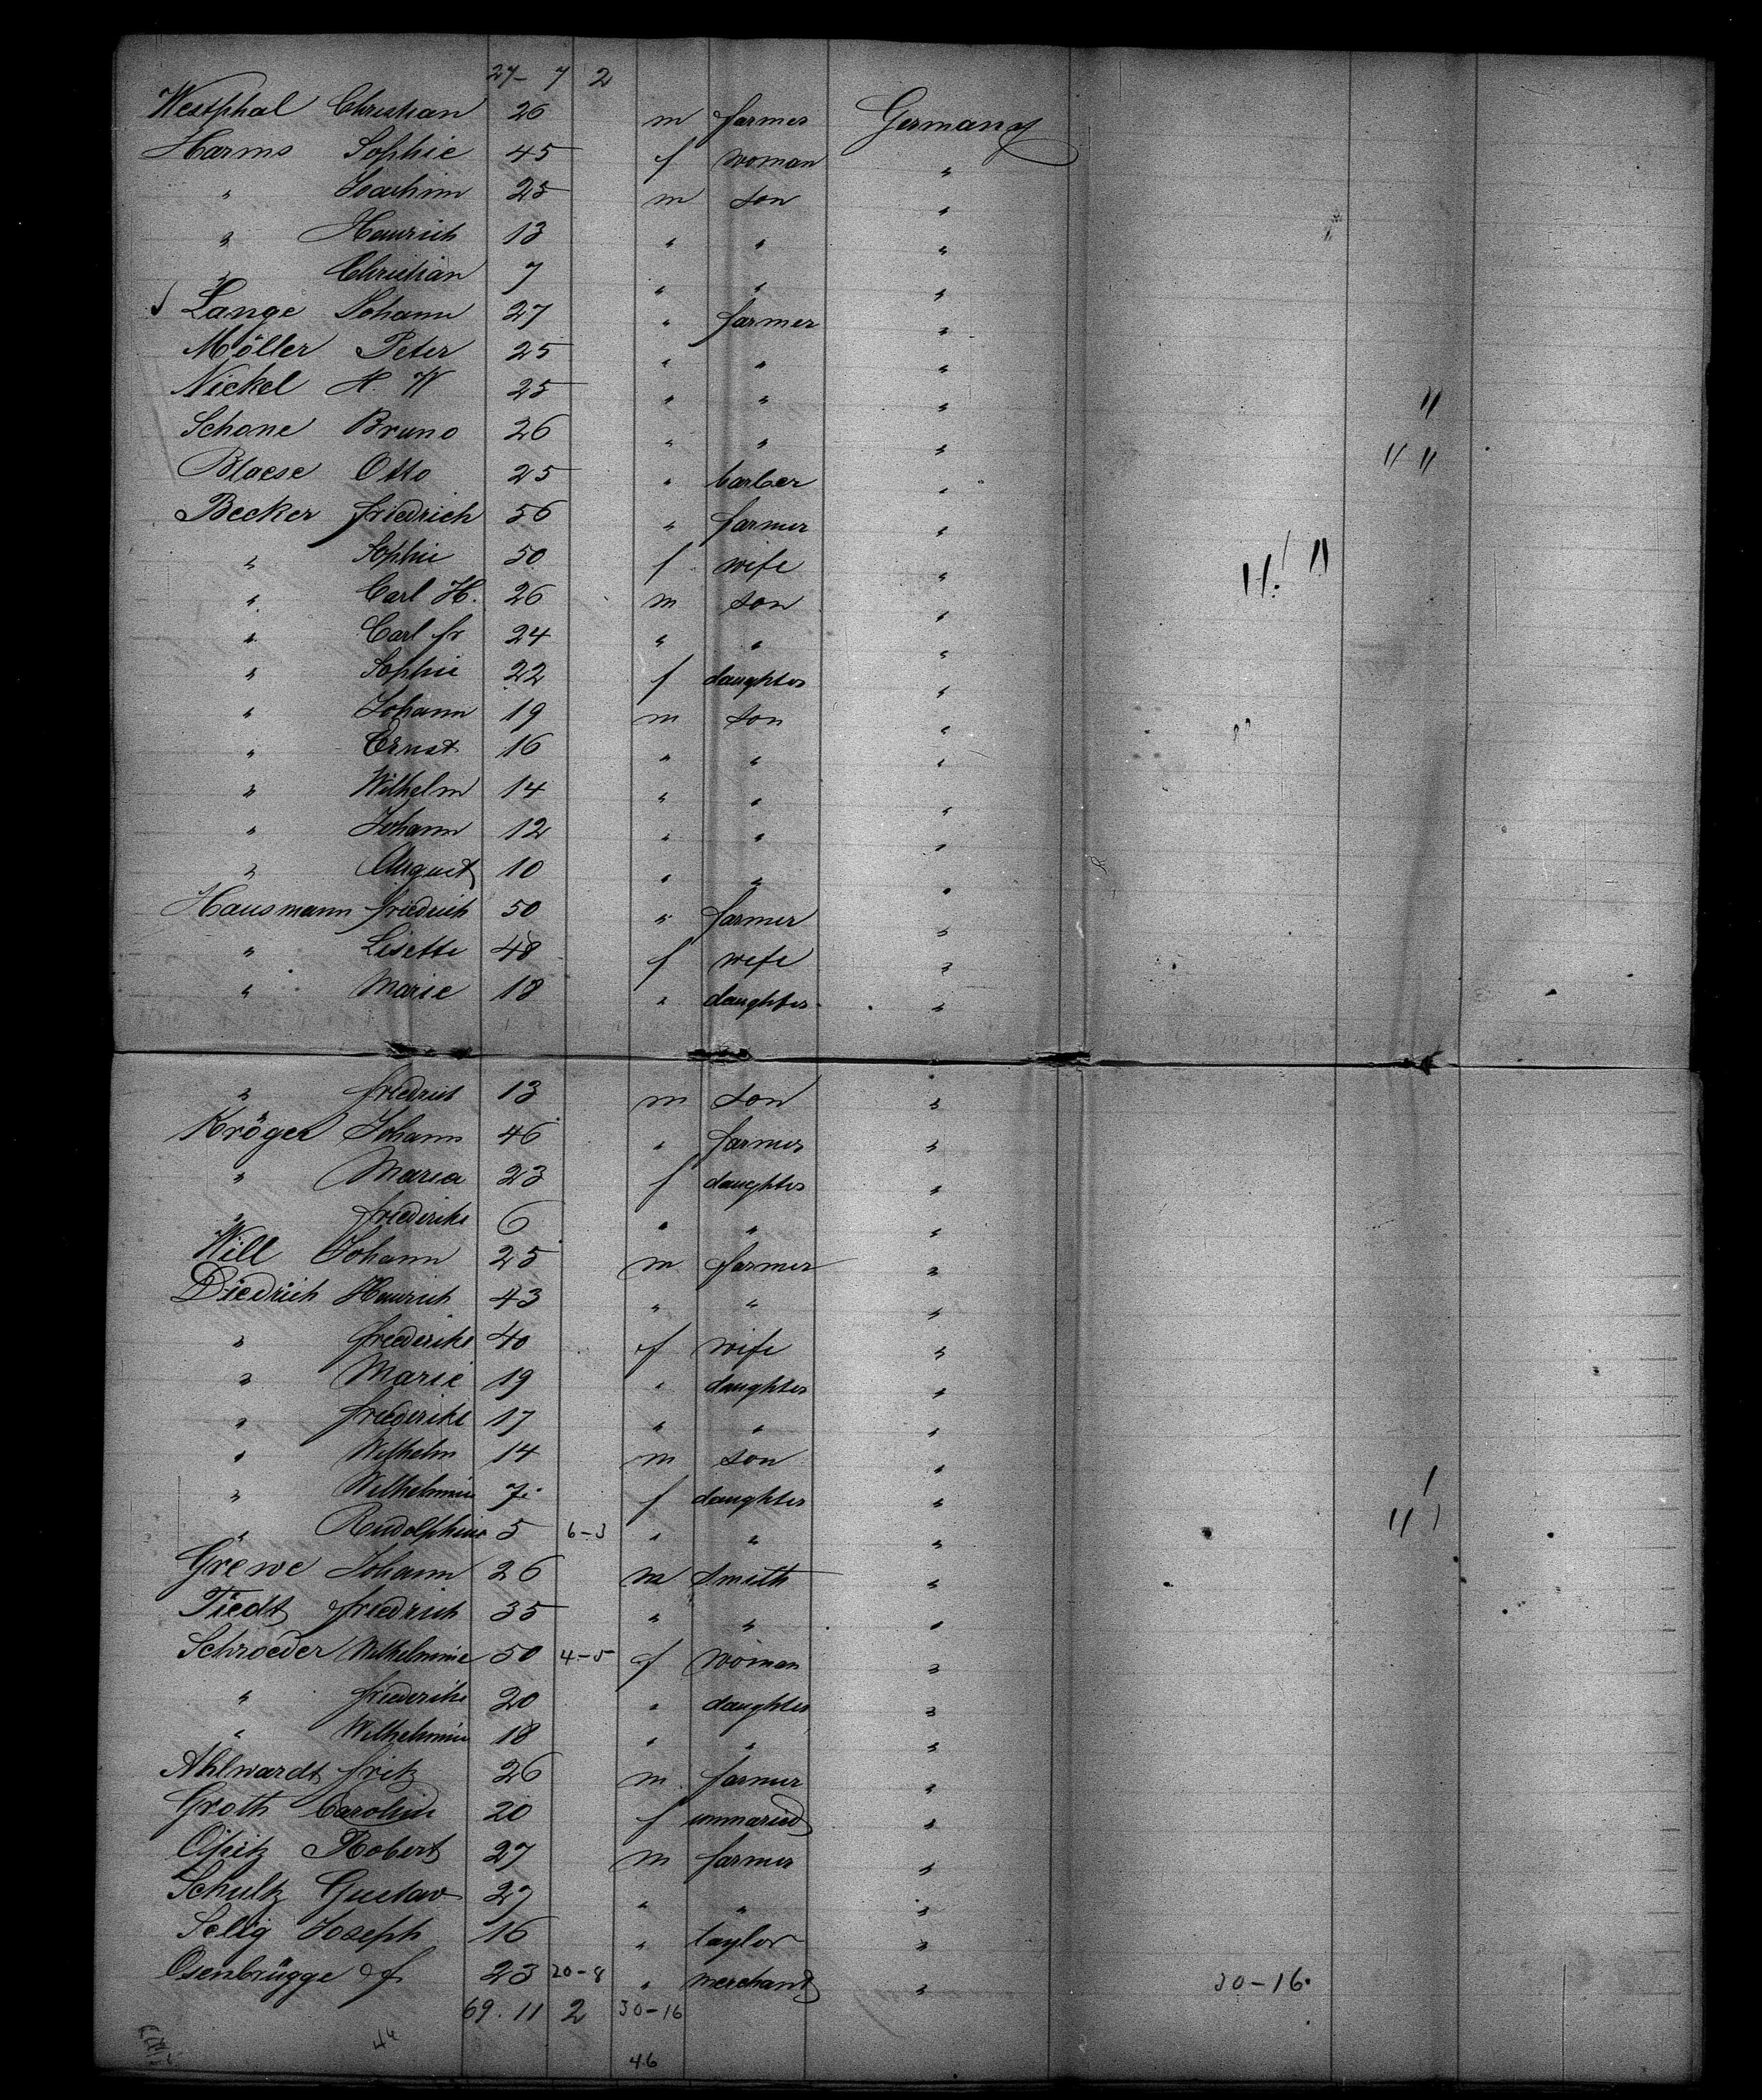 27- 7 2
Westphal Christian 26 m farmer Germany
Harms Sophie 45 f woman "
" Joachim 25 m son "
" Heinrich 13 " " "
" Christian 7 " " "
Lange Johann 27 " farmer "
Möller Peter 25 " " "
Nickel H. W 25 " " "
Schone Bruno 26 " " "
Blaese Otto 25 " barber "
Becker Friedrich 56 " farmer "
" Sophie 50 f wife "
" Carl H. 26 m son "
" Carl fr 24 " " "
" Sophie 22 f daughter "
" Johann 19 m son "
" Ernst 16 " " "
" Wilhelm 14 " " "
" Johann 12 " " "
" August 10 " " "
Hausmann Friedrich 50 " farmer "
" Lisette 48 f wife "
" Marie 18 " daughter "
" Friedrich 13 m son "
Kröger Johann 46 " farmer "
" Maria 23 f daughter "
" Friederike 6 " " "
Will Johann 25 m farmer "
Diedrich Heinrich 43 " " "
" Friederike 40 f wife "
" Marie 19 " daughter "
" Friederike 17 " " "
" Wilhelm 14 m son "
" Wilhelmine 7 f daughter "
" Rudolphine 5 6-3 " " "
Grewe Johann 26 m Smith "
Tiedt Friedrich 35 " " "
Schroeder Wilhelmine 50 4-5 f woman "
" Friederike 20 " daughter "
" Wilhelmine 18 " " "
Ahlwardt Fritz 26 m farmer "
Groth Caroline 20 f unmaried "
Opitz Robert 27 m farmer "
Schultz Gustav 27 " " "
Selig Joseph 16 " taylor "
Osenbrügge f 23 20-8 " merchant " 30-16
69. 11 2 30-16
46
46